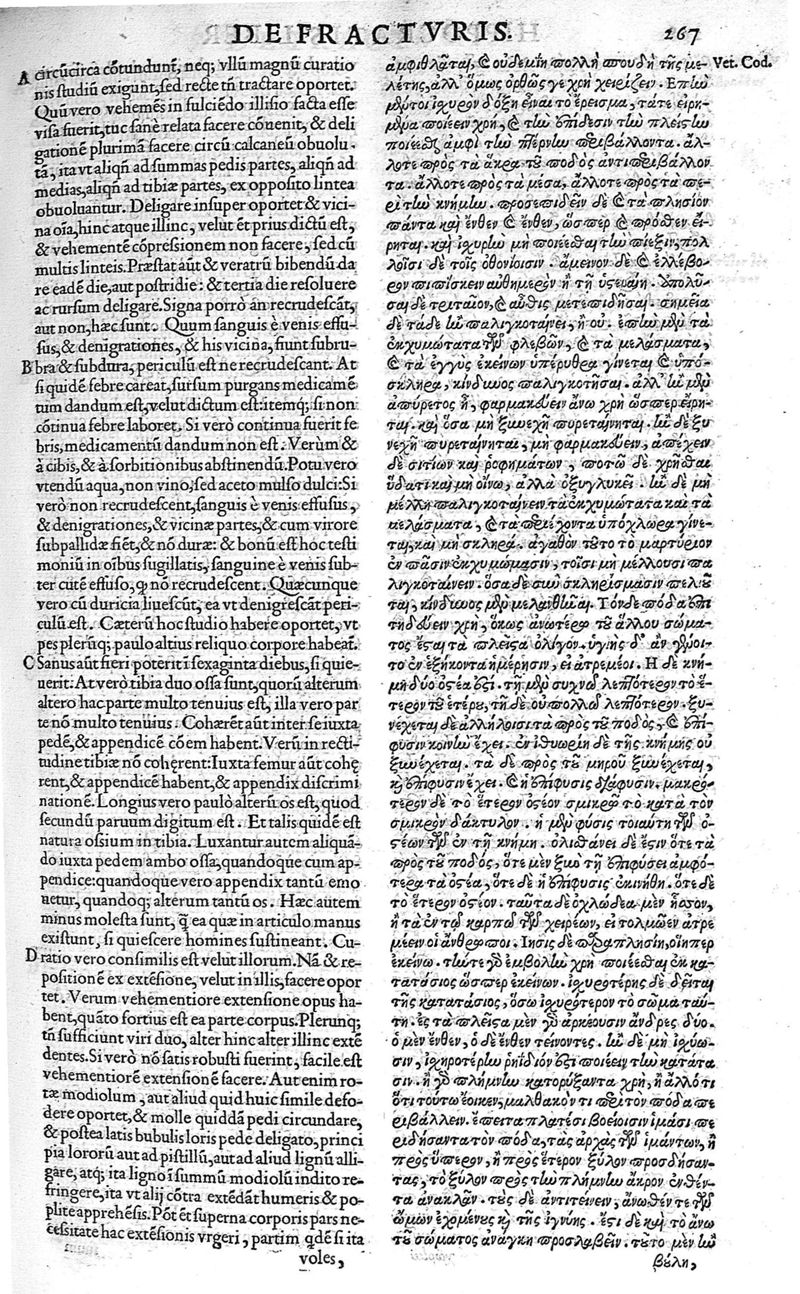 DE FRACTVRIS.
267
A
circūcirca cōtundunt, neq; vllū magnū curatio
nis studiū exigunt, sed recte tñ tractare oportet.
Quū vero vehemēs in fulciēdo illisio facta esse
visa fuerit, tūc sanè relata facere cōuenit, & deli
gationē plurimā facere circū calcaneū obuolu-
tā, ita vt aliqñ ad summas pedis partes, aliqñ ad
medias, aliqñ ad tibiæ partes, ex opposito lintea
obuoluantur. Deligare insuper oportet & vici-
na oīa, hinc atque illinc, velut et prius dictū est,
& vehementē cōpressionem non facere, sed cū
multis linteis. Præstat aūt & veratrū bibendū da
re eadē die, aut postridie: & tertia die resoluere
ac rursum deligare. Signa porrò an recrudescāt,
aut non, hæc sunt. Quum sanguis è venis effu-
sus, & denigrationes, & his vicina, fiunt subru-
B
bra & subdura, periculū est ne recrudescant. At
si quidē febre careat, sursum purgans medicamē
tum dandum est, velut dictum est: itemq; si non
cōtinua febre laboret. Si verò continua fuerit fe
bris, medicamentū dandum non est. Verùm &
à cibis, & à sorbitionibus abstinendū. Potu vero
vtendū aqua, non vino, sed aceto mulso dulci: Si
verò non recrudescent, sanguis è venis effusus,
& denigrationes, & vicinæ partes, & cum virore
subpallidæ fiēt, & nō duræ: & bonū est hoc testi
moniū in oībus sugillatis, sanguine è venis sub-
ter cutē effuso, q̨ nō recrudescent. Quæcunque
vero cū duricia liuescūt, ea vt denigrescāt peri-
culū est. Cæterū hoc studio habere oportet, vt
pes plerūq; paulo altius reliquo corpore habeat.
C
Sanus aūt fieri poterit ī sexaginta diebus, si quie-
uerit: At verò tibia duo ossa sunt, quorū alterum
altero hac parte multo tenuius est, illa vero par
te nō multo tenuius. Cohærēt aūt inter se iuxta
pedē, & appendicē cōem habent. Verū in recti-
tudine tibiæ nō cohęrent: Iuxta femur aūt cohę
rent, & appendicē habent, & appendix discrimi
nationē. Longius vero paulò alterū os est, quod
secundū paruum digitum est. Et talis quidē est
natura ossium in tibia. Luxantur autem aliquā-
do iuxta pedem ambo ossa, quandoque cum ap-
pendice: quandoque vero appendix tantū emo
uetur, quandoq; alterum tantū os. Hæc autem
minus molesta sunt, q̃ ea quæ in articulo manus
existunt, si quiescere homines sustineant. Cu-
D
ratio vero consimilis est velut illorum. Nā & re-
positionē ex extēsione, velut in illis, facere opor
tet. Verum vehementiore extensione opus ha-
bent, quāto fortius est ea parte corpus. Plerunq;
tñ sufficiunt viri duo, alter hinc alter illinc extē
dentes. Si verò nō satis robusti fuerint, facile est
vehementiorē extensionē facere. Aut enim ro-
tæ modiolum, aut aliud quid huic simile defo-
dere oportet, & molle quiddā pedi circundare,
& postea latis bubulis loris pede deligato, princi
pia lororū aut ad pistillū, aut ad aliud lignū alli-
gare, atq; ita ligno ī summū modiolū indito re-
fringere, ita vt alij cōtra extēdāt humeris & po-
plite apprehēsis. Pōt & superna corporis pars ne-
cessitate hac extēsionis vrgeri, partim q̃dē si ita
voles,
Vet. Cod.
ἀμφιθλᾶται, καὶ οὐδεμίη πολλὴ σπουδὴ τῆς με-
λέτης, ἀλλ' ὅμως ὀρθῶς γε χρὴ χειρίζειν. Ἐπὴν
μέντοι ἰχυρὸν δόξῃ εἶναι τὸ ἔρεισμα, τά τε εἰρη-
μένα ποιέειν χρὴ, καὶ τὴν ἐπίδεσιν τὴν πλείστην
ποιέεσθαι ἀμφὶ τὴν πτέρνην περιβάλλοντα. ἄλ-
λοτε πρὸς τὰ ἄκρα τοῦ ποδὸς ἀντιπεριβάλλον
τα. ἄλλοτε πρὸς τὰ μέσα, ἄλλοτε πρὸς τὰ πε-
ρὶ τὴν κνήμην. προσεπιδεῖν δὲ καὶ τὰ πλησίον
πάντα καὶ ἔνθεν καὶ ἔνθεν, ὥσπερ καὶ πρόσθεν εἴ-
ρηται. καὶ ἰχυρὴν μὴ ποιέεσθαι τὴν πίεξιν, πολ
λοῖσι δὲ τοῖς ὀθονίοισιν. ἄμεινον δὲ καὶ ἐλλέβο-
ρον πιπίσκειν αὐθημερὸν ἢ τῇ ὑστεραίῃ. ἀπολῦ-
σαι δὲ τριταῖον, καὶ αὖθις μετεπιδῆσαι. σημεῖα
δὲ τάδε ἢν παλιγκοταίνει, ἢ οὔ. ἐπὴν μὲν τὰ
ἐκχυμώματα τῶν φλεβῶν, καὶ τὰ μελάσματα,
καὶ τὰ ἐγγὺς ἐκείνων ὑπέρυθρα γίνεται καὶ ὑπό-
σκληρα, κίνδυνος παλιγκοτῆσαι. ἀλλ' ἢν μὲν
ἀπύρετος ᾖ, φαρμακεύειν ἄνω χρὴ ὥσπερ εἴρη-
ται. καὶ ὅσα μὴ ξυνεχῆ πυρεταίνηται. ἢν δὲ ξυ
νεχῆ πυρεταίνηται, μὴ φαρμακεύειν, ἀπέχειν
δὲ σιτίων καὶ ῥοφημάτων, ποτῷ δὲ χρῆσθαι
ὕδατι καὶ μὴ οἴνῳ, ἀλλὰ ὀξυγλυκεῖ. ἢν δὲ μὴ
μέλλῃ παλιγκοταίνειν τὰ ἐκχυμώματα καὶ τὰ
μελάσματα, καὶ τὰ περιέχοντα ὑπόχλωρα γίνε-
ται, καὶ μὴ σκληρά. ἀγαθὸν τοῦτο τὸ μαρτύριον
ἐν πᾶσιν ἐκχυμώμασιν, τοῖσι μὴ μέλλουσι πα
λιγκοταίνειν. ὅσα δὲ σὺν σκληρίσμασιν πελιοῦ
ται, κίνδυνος μὲν μελανθῆναι. Τὸν δὲ πόδα ἐπι
τηδεύειν χρὴ, ὅκως ἀνωτέρω τοῦ ἄλλου σώμα-
τος ἔσται τὰ πλεῖστα ὀλίγον. ὑγιὴς δ' ἂν γένοι-
το ἐν ἑξήκοντα ἡμέρησιν, εἰ ἀτρεμέοι. Ἡ δὲ κνή-
μη δύο ὀστέα ἐστί. τῇ μὲν συχνῷ λεπτότερον τὸ ἕ-
τερον τοῦ ἑτέρου, τῇ δὲ οὐ πολλῷ λεπτότερον. ξυ-
νέχεται δὲ ἀλλήλοισι τὰ πρὸς τοῦ ποδὸς, καὶ ἐπί-
φυσιν κοινὴν ἔχει. ἐν ἰθυωρίῃ δὲ τῆς κνήμης οὐ
ξυνέχεται. τὰ δὲ πρὸς τοῦ μηροῦ ξυνέχεται,
καὶ ἐπίφυσιν ἔχει. καὶ ἡ ἐπίφυσις διάφυσιν. μακρό-
τερον δὲ τὸ ἕτερον ὀστέον σμικρῷ τὸ κατὰ τὸν
σμικρὸν δάκτυλον. ἡ μὲν φύσις τοιαύτη τῶν ὀ-
στέων τῶν ἐν τῇ κνήμῃ. ὀλισθάνει δὲ ἔστιν ὅτε τὰ
πρὸς τοῦ ποδὸς, ὅτε μὲν ξὺν τῇ ἐπιφύσει ἀμφό-
τερα τὰ ὀστέα, ὅτε δὲ ἡ ἐπίφυσις ἐκινήθη. ὅτε δὲ
τὸ ἕτερον ὀστέον. ταῦτα δὲ ὀχλώδεα μὲν ἧσσον,
ἢ τὰ ἐν τῷ καρπῷ τῶν χειρέων, εἰ τολμῷεν ἀτρε
μέειν οἱ ἄνθρωποι. Ἴησις δὲ παραπλησίη, οἵηπερ
ἐκείνων. τήν τε γὰρ ἐμβολὴν χρὴ ποιέεσθαι ἐκ κα-
τατάσιος ὥσπερ ἐκείνων. ἰχυροτέρης δὲ δεῖται
τῆς κατατάσιος, ὅσῳ ἰχυρότερον τὸ σῶμα ταύ-
τῃ. ἐς τὰ πλεῖστα μὲν γὰρ ἀρκέουσιν ἄνδρες δύο.
ὁ μὲν ἔνθεν, ὁ δὲ ἔνθεν τείνοντες. ἢν δὲ μὴ ἰχύω-
σιν, ἰχηροτέρην ῥηίδιόν ἐστι ποιέειν τὴν κατάτα
σιν. ἢ γὰρ πλήμνην κατορύξαντα χρὴ, ἢ ἄλλό τι
ὅτι τούτῳ ἔοικεν, μαλθακόν τι περὶ τὸν πόδα πε
ριβάλλειν. ἔπειτα πλατέσι βοείοισιν ἱμᾶσι πε
ριδήσαντα τὸν πόδα, τὰς ἀρχὰς τῶν ἱμάντων, ἢ
πρὸς ὕπερον, ἢ πρὸς ἕτερον ξύλον προσδήσαν-
τας, τὸ ξύλον πρὸς τὴν πλήμνην ἄκρον ἐνθέν-
τα ἀνακλᾶν. τοὺς δὲ ἀντιτείνειν, ἄνωθέν τε τῶν
ὤμων ἐχομένους καὶ τῆς ἰγνύης. ἔστι δὲ καὶ τὸ ἄνω
τοῦ σώματος ἀνάγκῃ προσλαβεῖν. τοῦτο μὲν ἢν
βούλῃ,